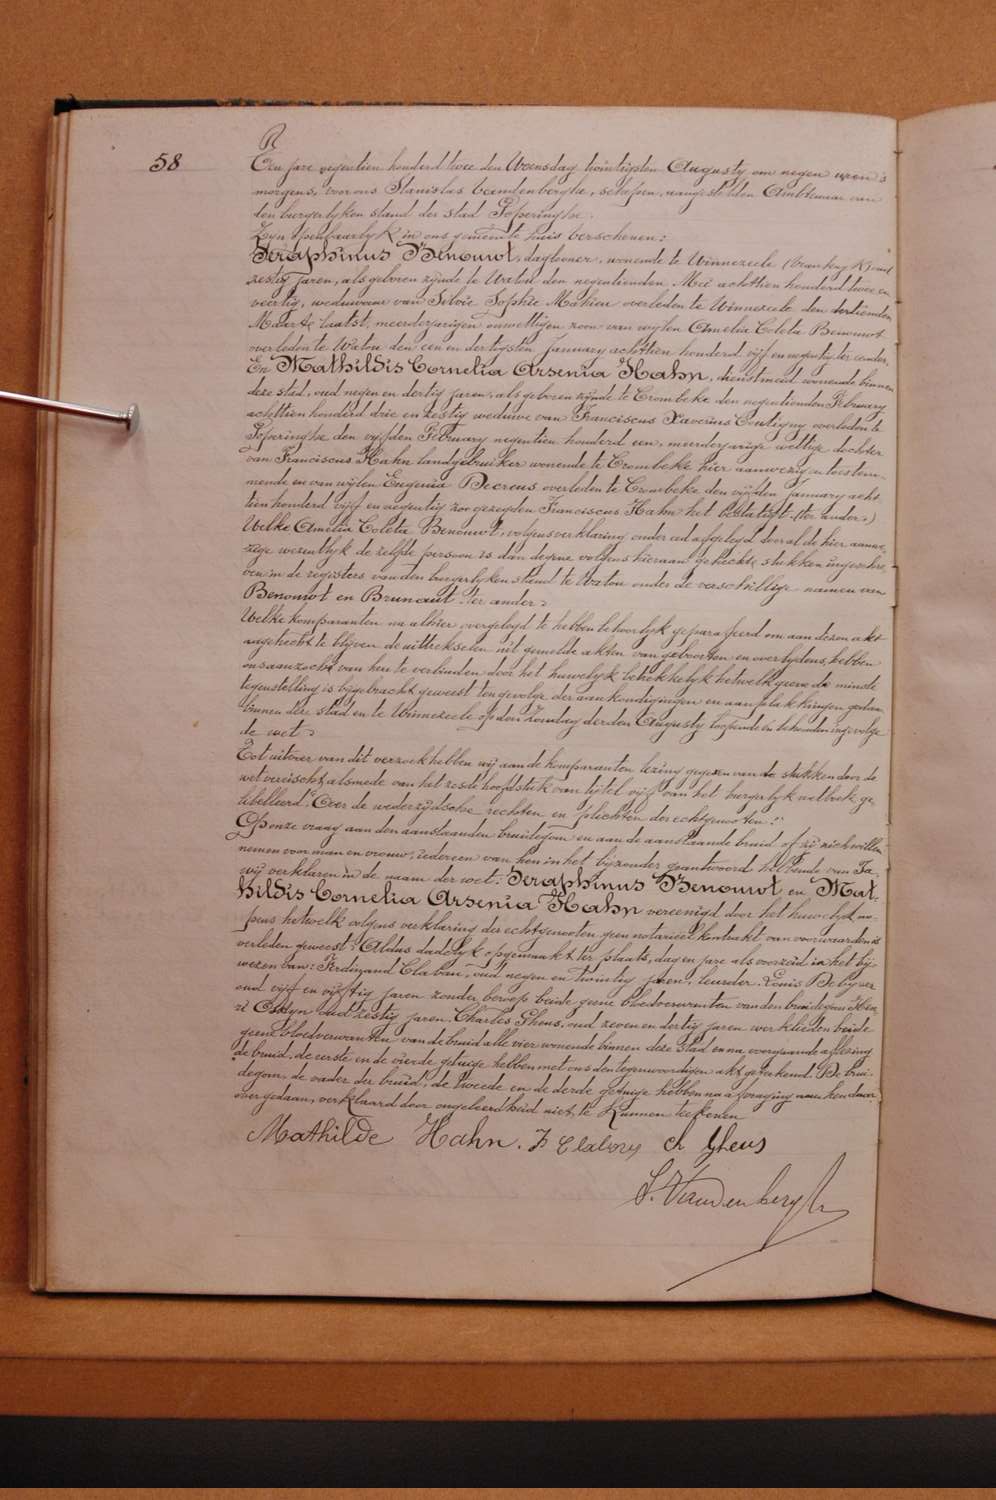 R
58
Een jare negentien honderd twee den Woensdag twintigsten Augusty om negen uren 's
morgens, voor ons Stanislas Vandenberghe, schepen, aangestelden Ambtenaar van
den burgerlyken stand der stad Poperinghe.
Zyn openbaarlyk in ons gemeente huis verschenen:
Seraphinus Benouwt, daglooner, wonende te Winnezeele (Frankryk) oud
zestig jaren, als geboren zynde te Watou den negentienden Mei achttien honderd twee en
veertig, weduwaar van Silvie Sophie Mahieu overleden te Winnezeele den dertienden
Maarte laatst, meerderjarigen onwettigen zoon van wylen Amelia Coleta Benouwt
overleden te Watou den een en dertigsten January achttien honderd vyf en negentig ter eender.
En Mathildis Cornelia Arsenia Hahn, dienstmeid wonende binnen
deze stad, oud negen en dertig jaren, als geboren zynde te Crombeke den negentienden February
achttien honderd drie en zestig weduwe van Franciscus Xaverius Coutigny overleden te
Poperinghe den vyfden February negentien honderd een, meerderjarige wettige dochter
van Franciscus Hahn landgebruiker wonende te Crombeke hier aanwezig en toestem-
mende en van wylen Eugenia Decreus overleden te Crombeke den vyfden January acht
tien honderd vyf en negentig zoo gezegden Franciscus Hahn het bestatigt (ter ander.)
Welke Amelia Coleta Benouwt, volgens verklaring onder eed afgelegd door al de hier aanwe-
zige wezentlyk de zelfde persoon is dan degene volgens hieraan gehechte stukken ingeschre
ven in de registers van den burgerlyken stand te Watou onder de verschillige namen van
Benouwt en Brunaut ter ander.
Welke komparanten na alhier overgelegd te hebben behoorlyk geparafeerd om aan dezen akt
aagehecht te blijven de uittrekselen uit gemelde akten van geboorten en overlydens, hebben
ons aanzocht van hen te verbinden door het huwelyk betrekkelyk hetwelk geene de minste
tegenstelling is bygebracht geweest ten gevolge der aankondigingen en aanplakkingen gedaan
binnen der stad en te Winnezeele op den Zondag derden Augusty loopende en behouden ingevolge
de wet.
Tot uitvoer van dit verzoek hebben wij aan de komparanten lezing gegeven van de stukken door de
wet vereischt alsmede van het zesde hoofdstuk van tytel vijf van het burgerlyk wetboek ge
libelleerd: "Over de wederzydsche rechten en plichten der echtgenooten."
Op onze vraag aan den aanstaanden bruidegom en aan de aanstaande bruid of zij zich willen
nemen voor man en vrouw, iedereen van hen in het byzonder geantwoord hebbende van Ja,
wij verklaren in de naam der wet: Seraphinus Benouwt en Mat-
hildis Cornelia Arsenia Hahn vereenigd door het huwelyk no-
pens hetwelk volgens verklaring der echtgenooten geen notarieel kontrakt van voorwaarden is
verleden geweest. Aldus dadelyk opgemaakt ter plaats, dag en jare als voorzeid in het bij-
wezen van: Ferdinand Clabau, oud negen en twintig jaren, leurder. Louis Debyser
oud vijf en vijftig jaren zonder beroep beide geene bloedverwanten van den bruidegom. Hen
ri Ostyn oud zestig jaren. Charles Gheus, oud zeven en dertig jaren werklieden beide
geene bloedverwanten van de bruid alle vier wonende binnen deze stad en na voorgaande aflezing
de bruid, de eerste en de vierde getuige hebben met ons den tegenwoordigen akt geteekend. De brui-
degom, de vader der bruid, de tweede en de derde getuige hebben na afvraging aan hen daar
over gedaan, verklaard door ongeleerdheid niet te kunnen teekenen
Mathilde Hahn. F Clabau Ch Gheus
S. Vandenberghe